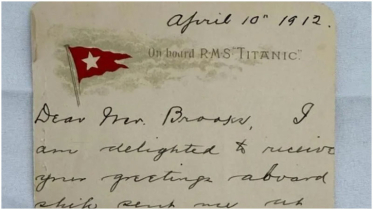 April 10th 1912.
On board R.M.S. "TITANIC".
Dear Mr. Brooks, I
am delighted to receive
your greetings aboard
ship sent me at